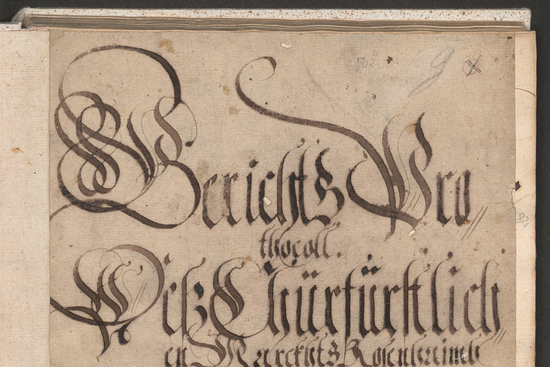 Gerichts Pro
thocoll.
Deß Chürfürstlich
en Marckhts Rosenheimb